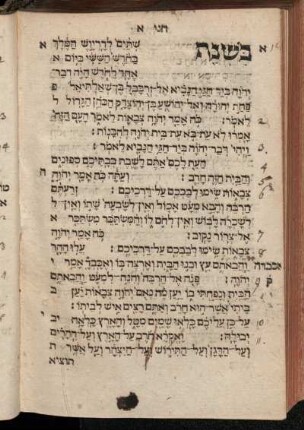 חגי א
בשנת שתים לדריוש המלך
בחדש הששי ביום
אחד לחדש היה דבר
יהוה ביד חגי הנביא אל זרבבל בן שאלתיאל
פחת יהודה ואל יהושע בן יהוצדק הכהן הגדול
לאמר: כה אמר יהוה צבאות לאמר העם הזה
אמרו לא עת בא עת בית יהוה להבנות:
ויהי דבר יהוה ביד חגי הנביא לאמר:
העת לכם אתם לשבת בבתיכם ספונים
והבית הזה חרב: ועתה כה אמר יהוה
צבאות שימו לבבכם על דרכיכם: זרעתם
הרבה והבא מעט אכול ואין לשבעה שתו ואין
לשכרה לבוש ואין לחם לו והמשתכר משתכר
אל צרור נקוב: כה אמר יהוה
צבאות שימו לבבכם על דרכיכם: עלו ההר
והבאתם עץ ובנו הבית וארצה בו ואכבד אמר
יהוה: פנה אל הרבה והנה למעט והבאתם
הבית ונפחתי בו יען מה נאם יהוה צבאות יען
ביתי אשר הוא חרב ואתם רצים איש לביתו:
על כן עליכם כלאו שמים מטל והארץ כלאה
יבולה: ואקרא חרב על הארץ ועל ההרים
ועל הדגן ועל התירוש ועל היצהר ועל אשר
תוציא